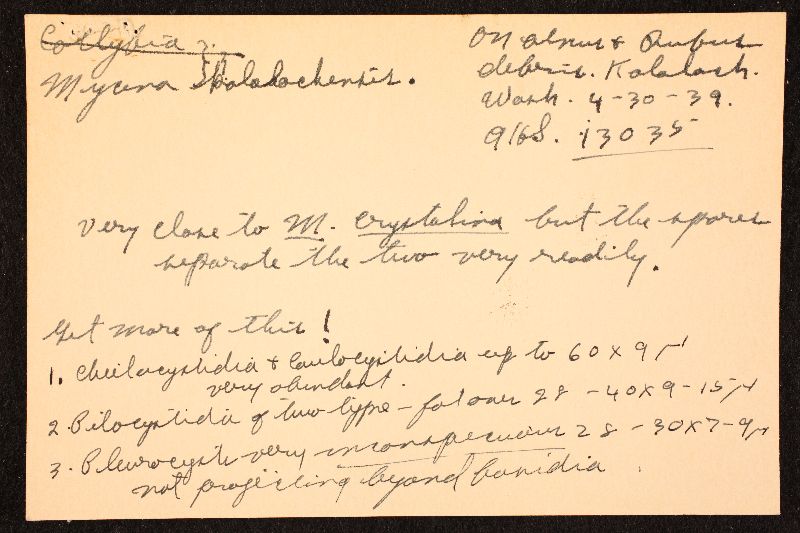 Collybia ?
Mycena Kalalochensis.
On Alnus + Rubus
debris. Kalaloch.
Wash. 4-30-39.
AHS. 13035
Very close to M. crystalina but the spores
separate the two very readily.
Get more of this!
1. Cheilocystidia + Caulocystidia up to 60 x 9 µ
very abundant.
2. Pilocystidia of two type - fat over 28 - 40 x 9 - 15 µ
3. Pleurocysts very inconspicuous 28 - 30 x 7 - 9 µ
not projecting beyond basidia